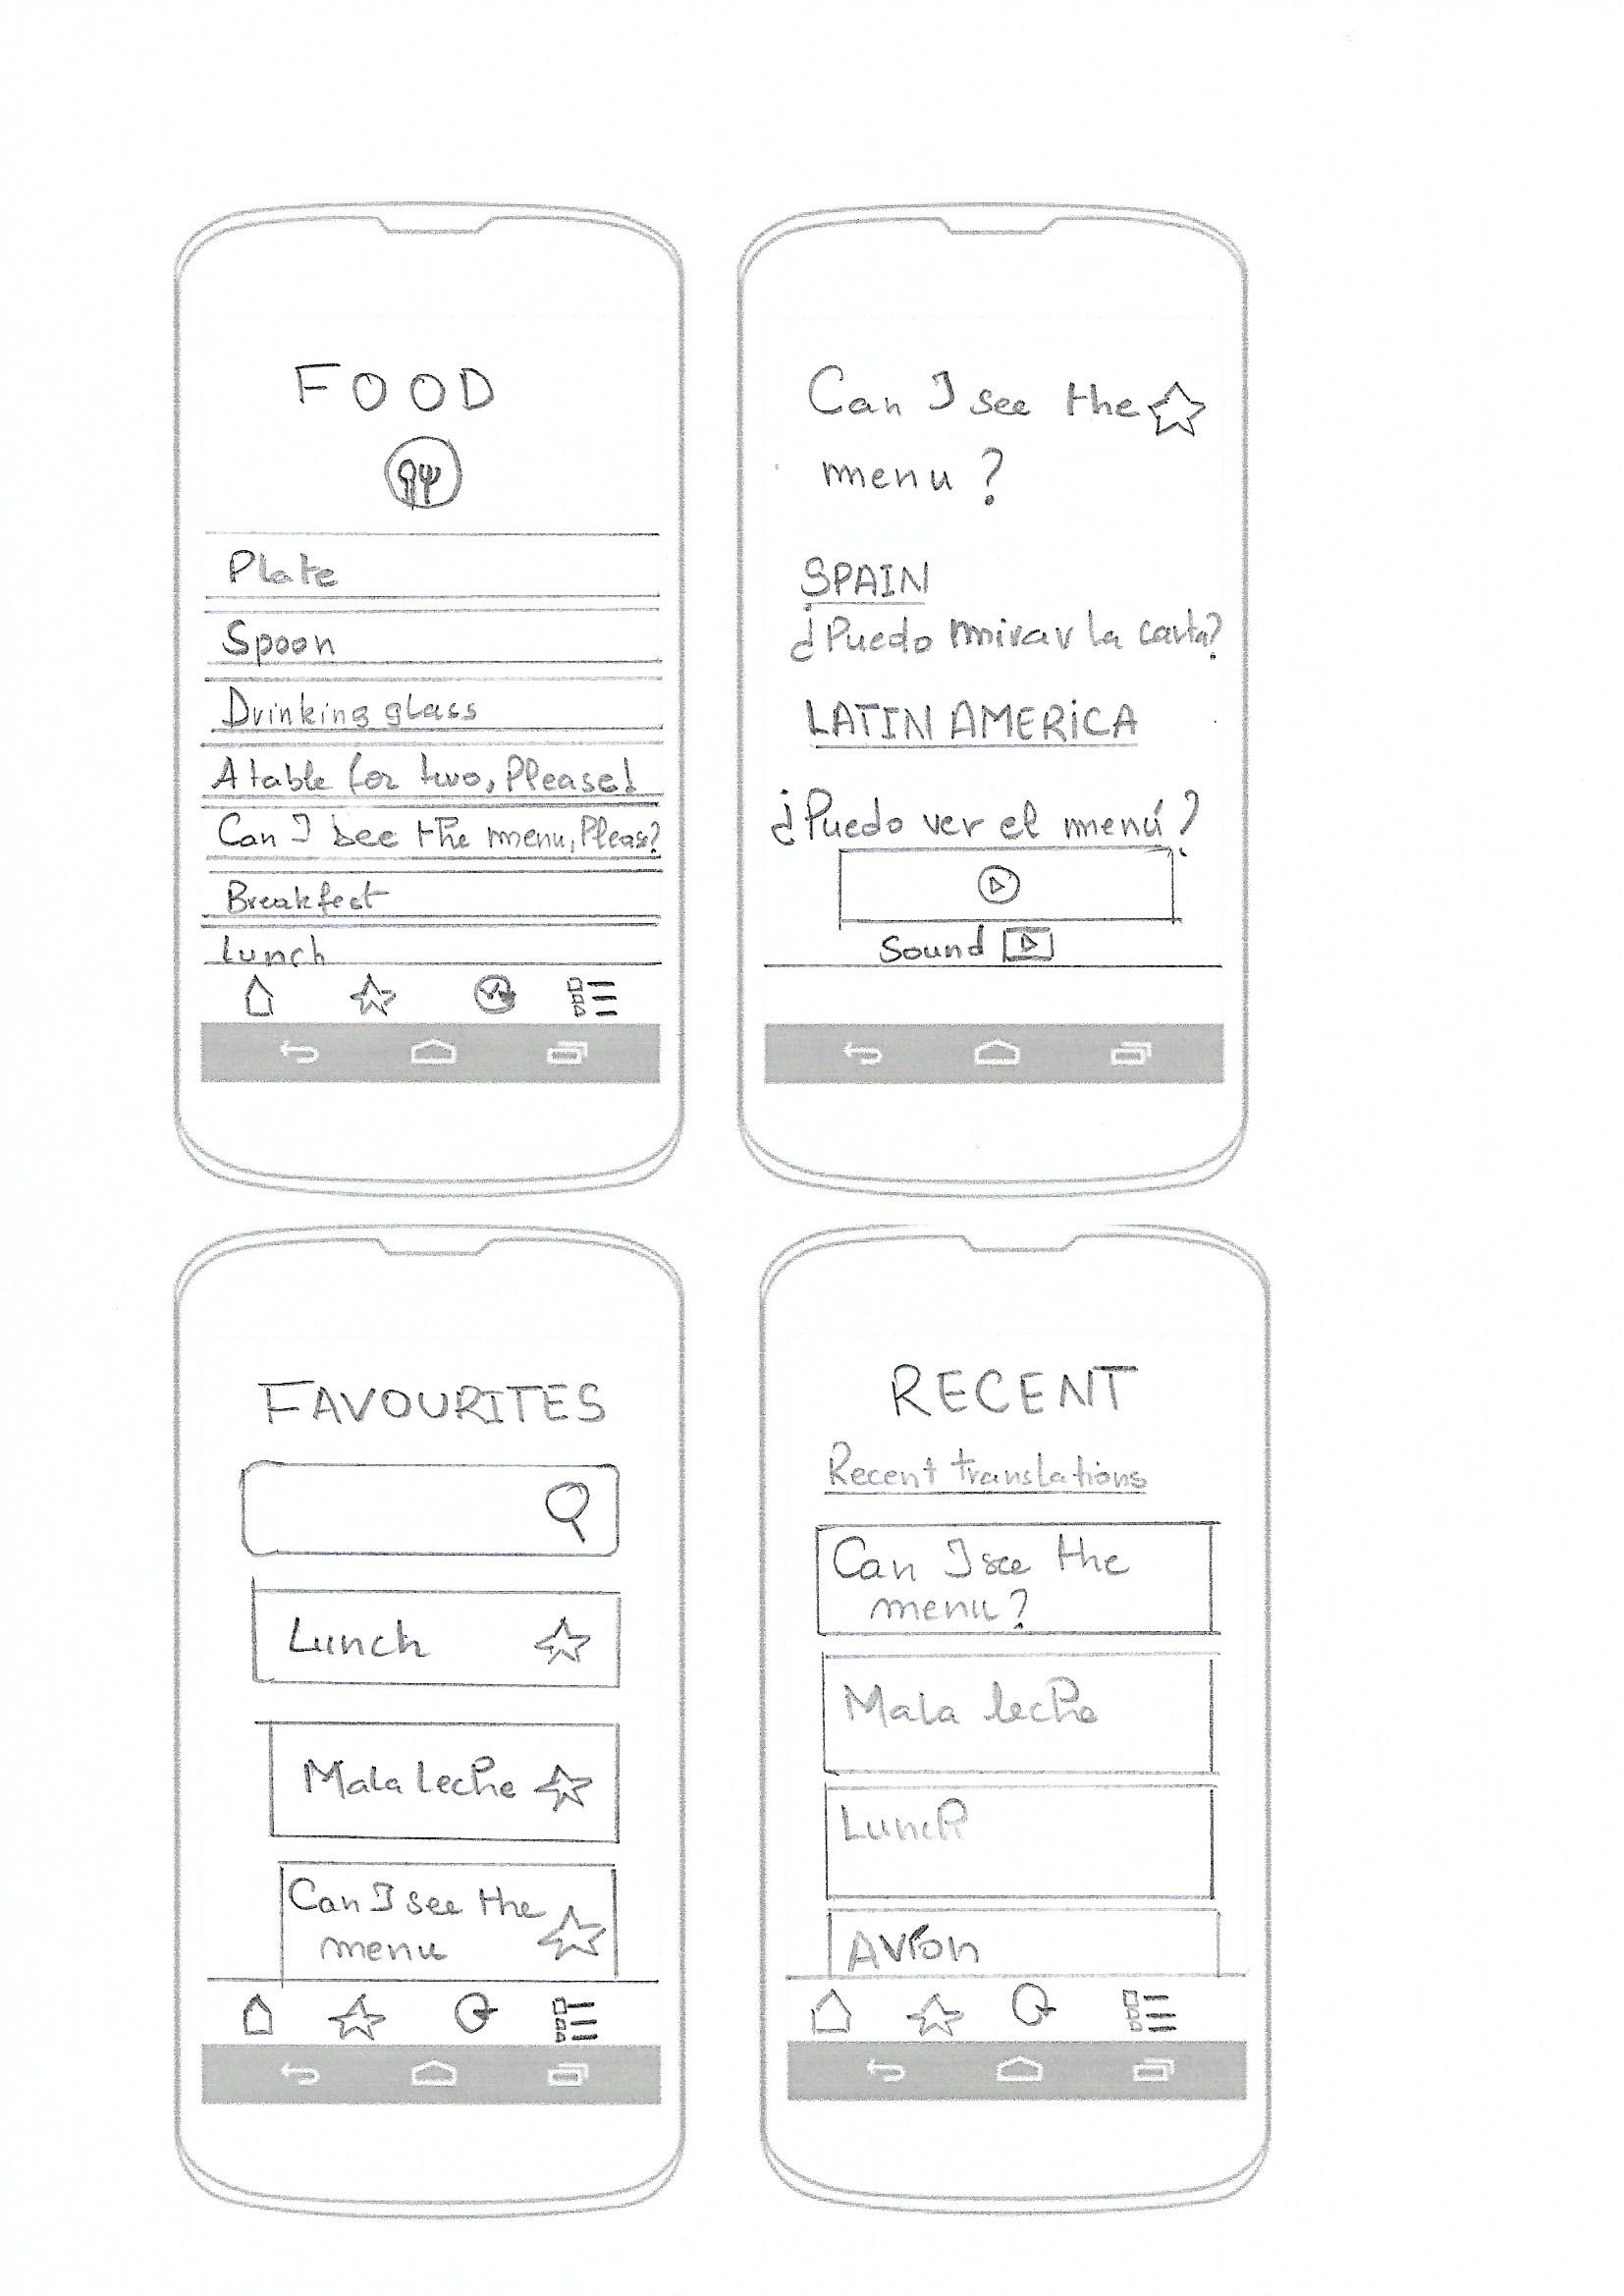 FOOD
Plate
Spoon
Drinking glass
A table for two, Please!
Can I see the menu, Please?
Breakfest
Lunch
Can I see the
menu?
SPAIN
¿Puedo mirar la carta?
LATIN AMERICA
¿Puedo ver el menú?
Sound
FAVOURITES
Lunch
Mala leche
Can I see the
menu
RECENT
Recent translations
Can I see the
menu?
Mala leche
Lunch
Avion